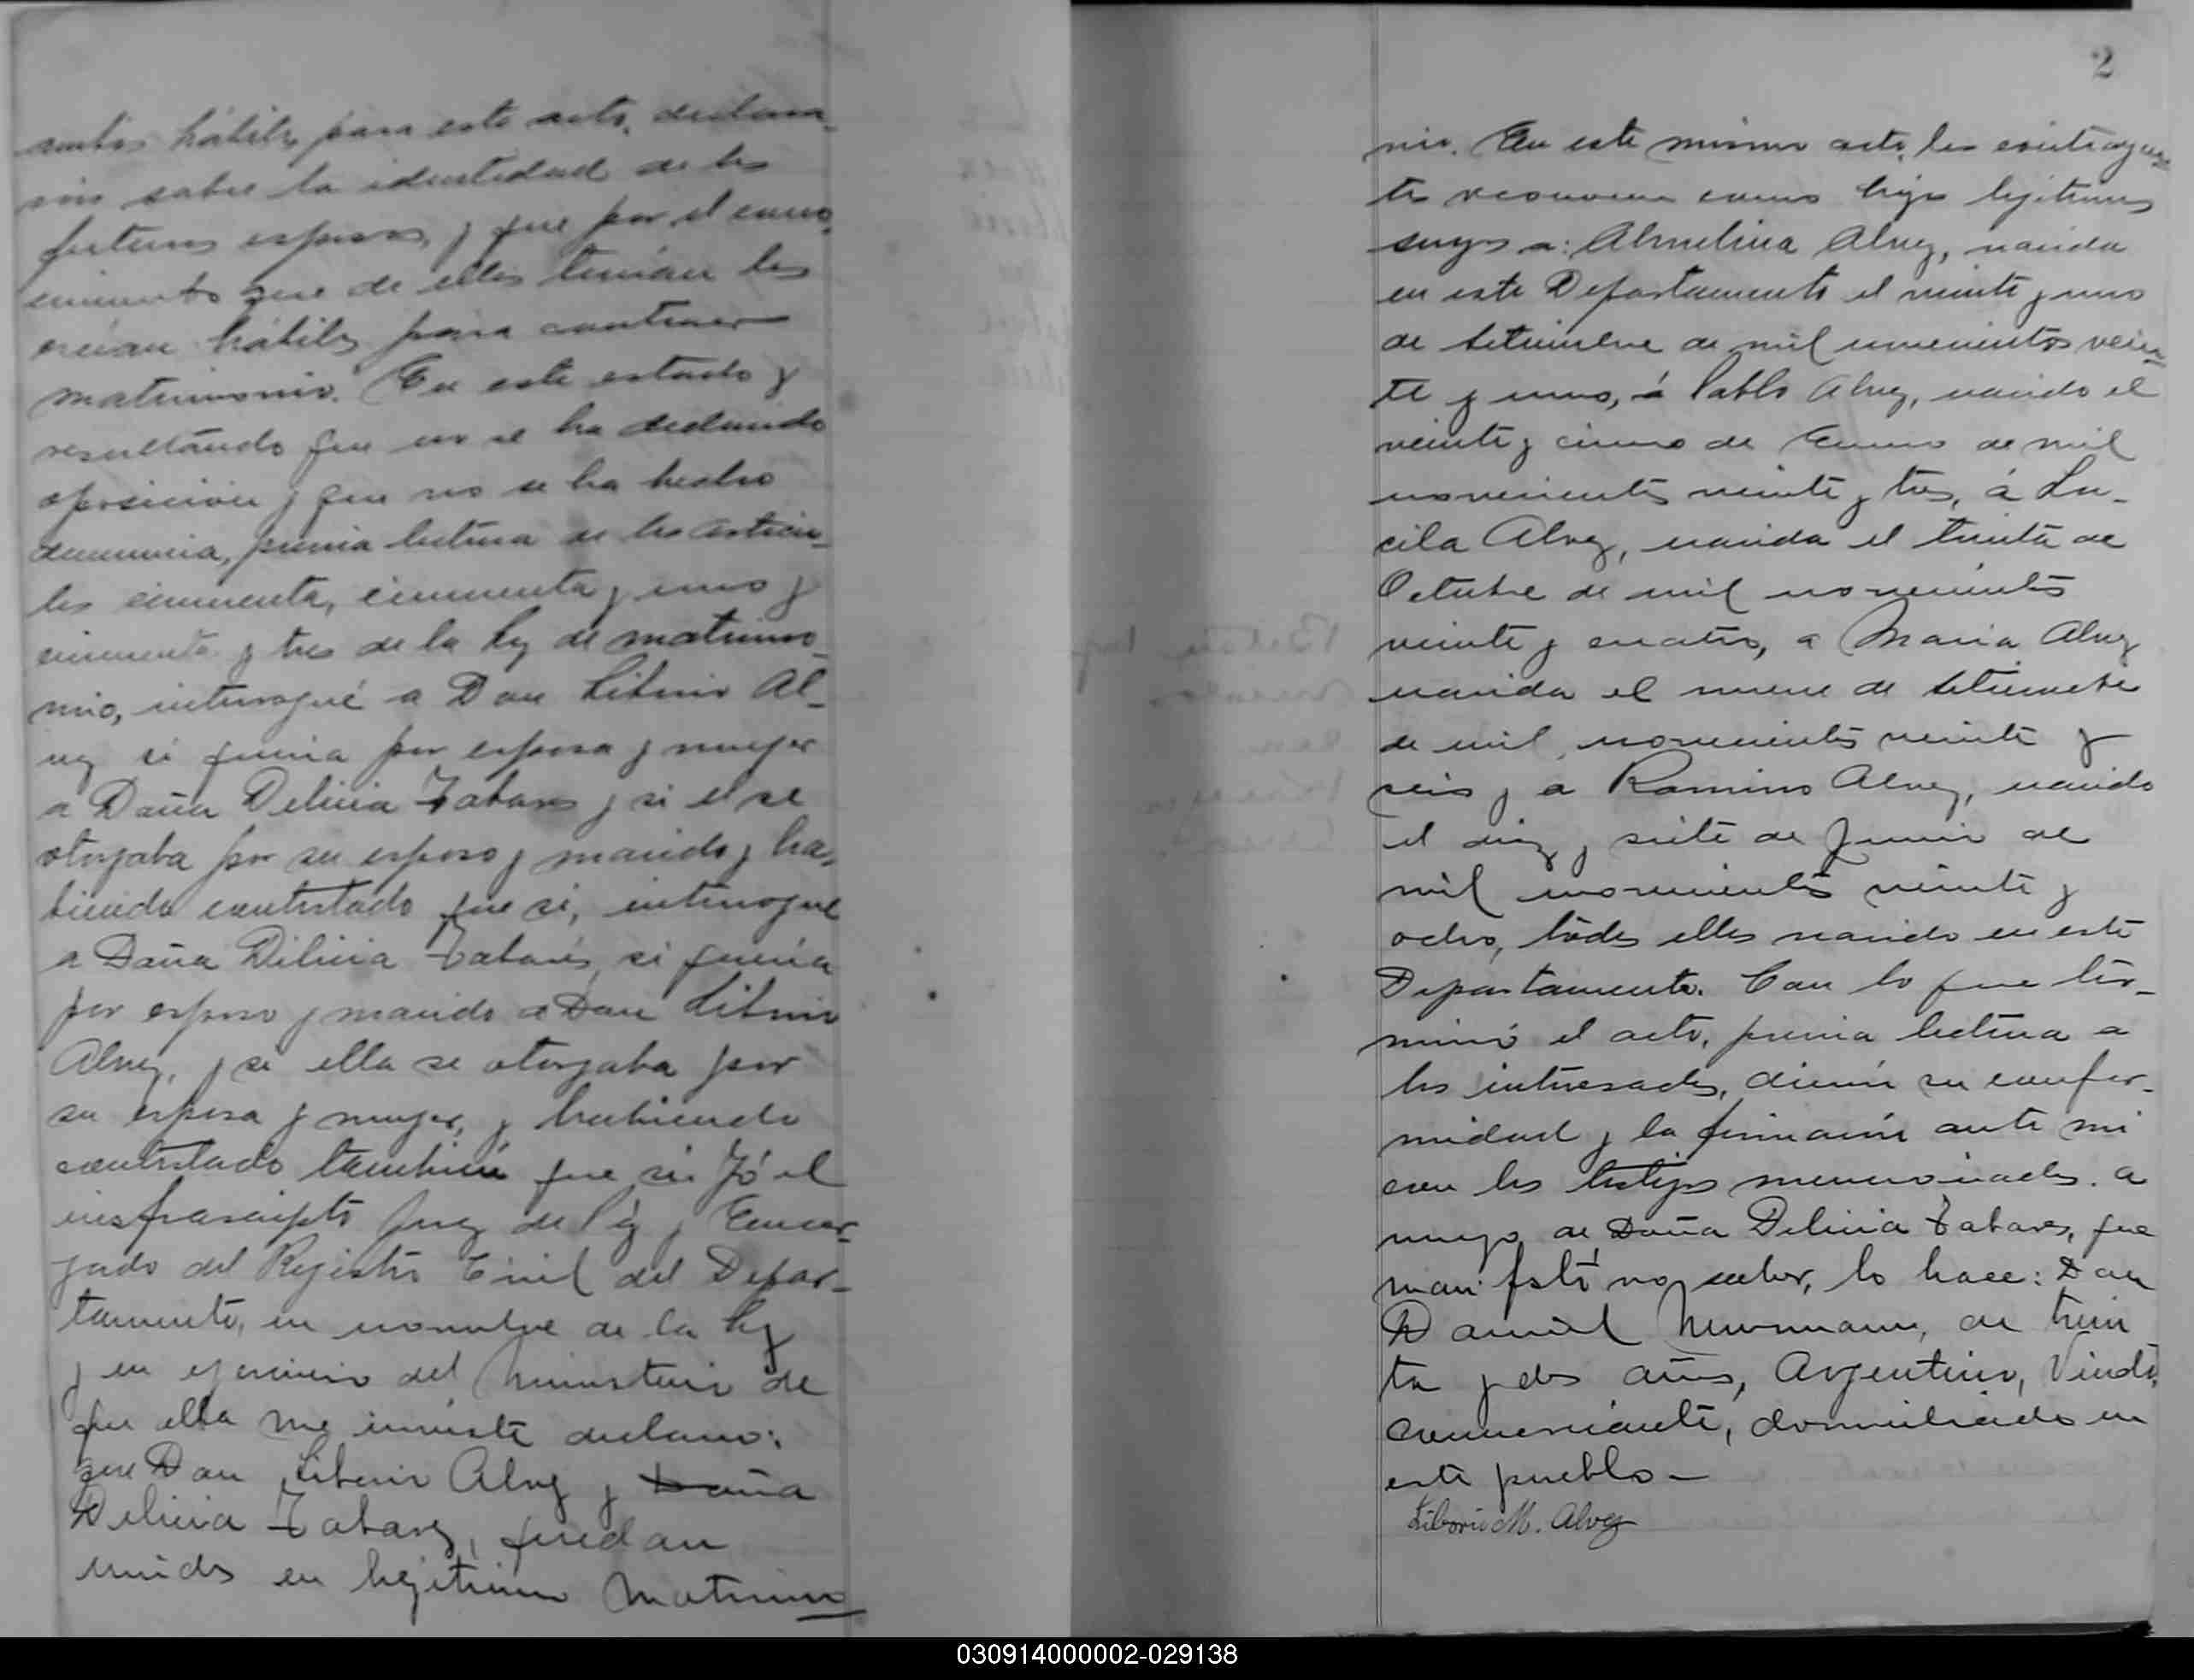 ambos hábiles para este acto, declara-
ron saber la identidad de los
futuros esposos, y que por el cono-
cimiento que de ellos tenían los
creían hábiles para contraer
matrimonio. En este estado y
resultando que no se ha deducido
oposición y que no se ha hecho
denuncia, previa lectura de los artícu-
los cincuenta, cincuenta y uno y
cincuenta y tres de la ley de matrimo-
nio, interrogué a Don Liborio Al-
vez si quería por esposa y mujer
a Doña Delicia Tabares y si el se
otorgaba por su esposo y marido y ha-
biendo contestado que si, interrogué
a Doña Delicia Tabares, si quería
por esposo y marido a Don Liborio
Alvez, y si ella se otorgaba por
su esposa y mujer, y habiendo
contestado también que si Yó el
infrascripto Juez de Páz y Encar-
gado del Registro Civil del Depar-
tamento, en nombre de la ley
y en ejercicio del Ministerio de
que ella me inviste declaro:
que Don Liborio Alvez y Doña
Delicia Tabarez, quedan
unidos en legítimo Matrimo-
2
nio. En este mismo acto, los contrayen-
tes reconocen como hijos legítimos
suyos a: Almelina Alvez, nacida
en este Departamento el veinte y uno
de Setiembre de mil novecientos vein-
te y uno, á Pablo Alvez, nacido el
veinte y cinco de Enero de mil
novecientos veinte y tres, á Lu-
cila Alvez, nacida el treinta de
Octubre de mil novecientos
veinte y cuatro, a Maria Alvez
nacida el nueve de Setiembre
de mil novecientos veinte y
seis y a Ramiro Alvez, nacido
el diez y siete de Junio de
mil novecientos veinte y
ocho, todos ellos nacidos en este
Departamento. Con lo que ter-
minó el acto, previa lectura a
los interesados, dieron su confor-
midad y la firmaron ante mi
con los testigos mencionados. a
ruego de Doña Delicia Tabares, que
manifestó no saber, lo hace: Don
Daniel Newmann, de trein
ta y dos años, Argentino, Viudo,
comerciante, domiciliado en
este pueblo-
Liborio M. Alvez
030914000002-029138